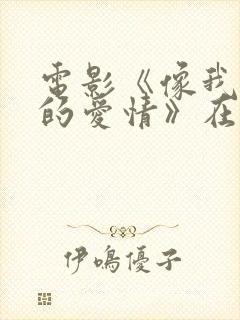 電影《像我
的愛情》在
伊鳴優子